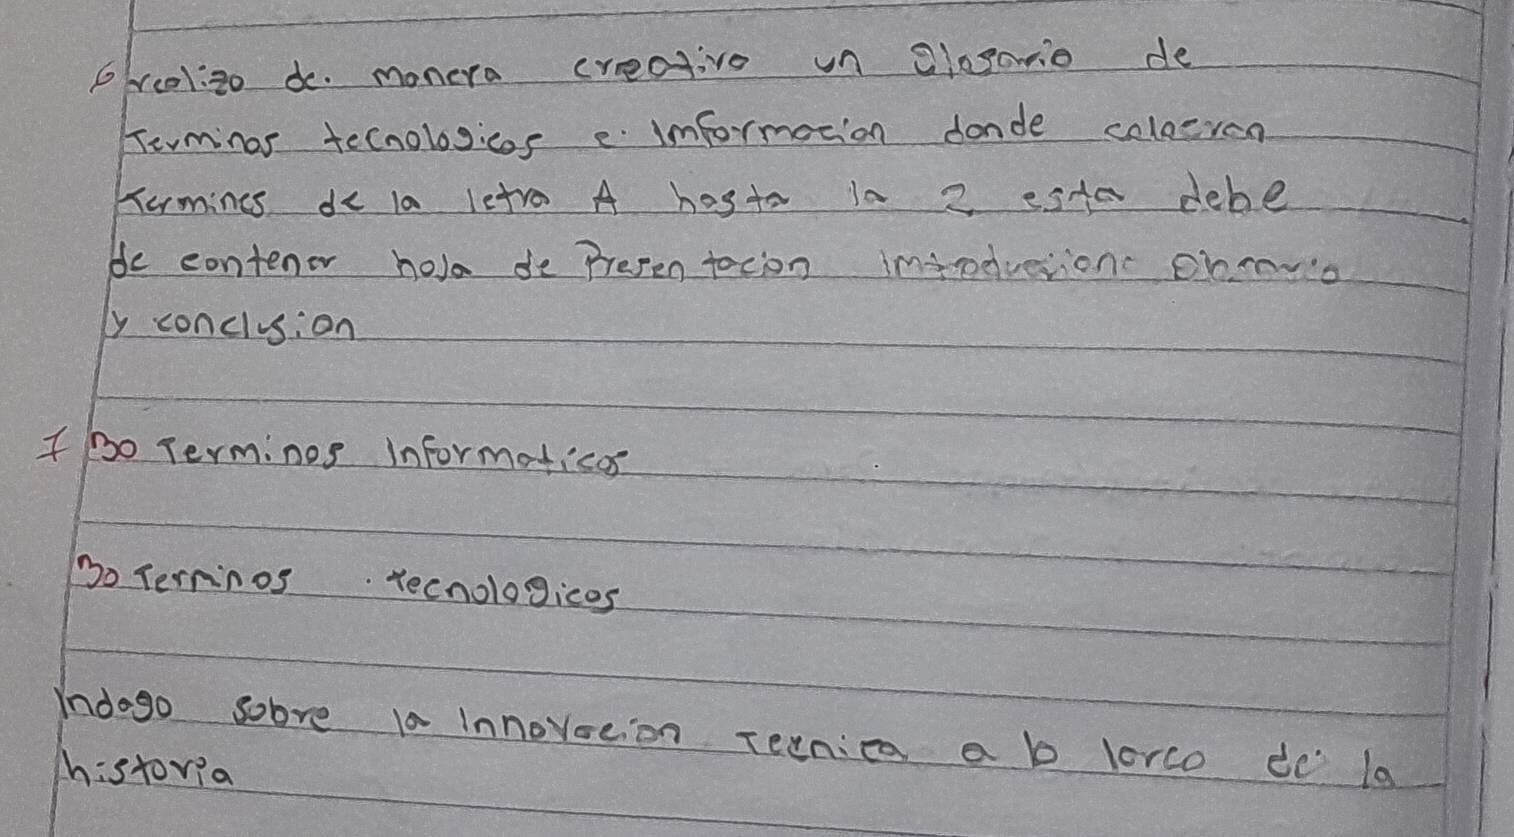 6 realizo de. manera creativo un Glosario de
Terminos tecnologicos e. Imformacion donde colocren
termines de la letra A hasta la Z esta debe
de contener hoja de Presentacion
y conclusion
I 30 Terminos Informaticos
30 Terminos tecnologicos
Indago sobre la Innovacion Tecnica a lo lorco de la
historia